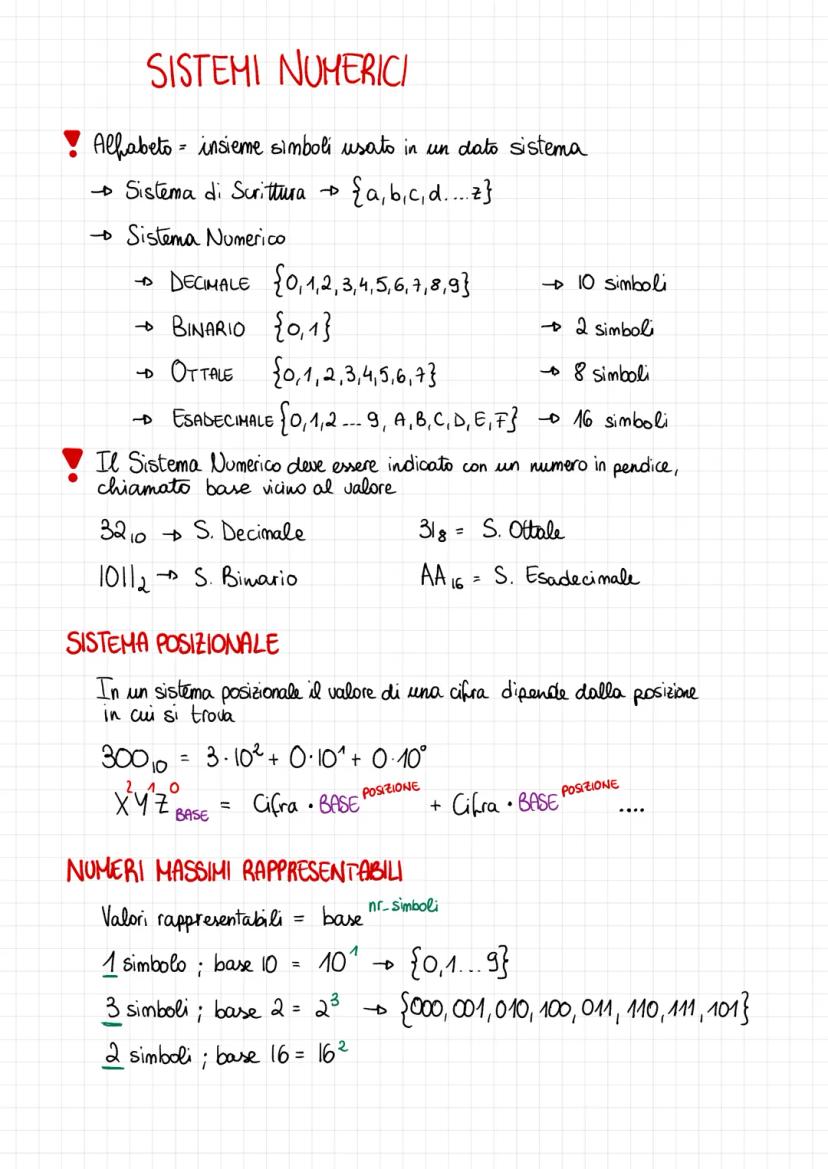 SISTEMI NUMERICI
! Alfabeto = insieme simboli usato in un dato sistema
→ Sistema di Scrittura → {a,b,c,d....z}
→ Sistema Numerico
→ DECIMALE {0,1,2,3,4,5,6,7,8,9} → 10 simboli
→ BINARIO {0,1} → 2 simboli
→ OTTALE {0,1,2,3,4,5,6,7} → 8 simboli
→ ESADECIMALE {0,1,2...9, A,B,C,D,E,F} → 16 simboli
! Il Sistema Numerico deve essere indicato con un numero in pendice,
chiamato base vicino al valore
32₁₀ → S. Decimale 31₈ = S. Ottale
1011₂ → S. Binario AA₁₆ = S. Esadecimale
SISTEMA POSIZIONALE
In un sistema posizionale il valore di una cifra dipende dalla posizione
in cui si trova
300₁₀ = 3·10² + 0·10¹ + 0·10⁰
X²Y¹Z⁰ BASE = Cifra · BASE POSIZIONE + Cifra · BASE POSIZIONE ....
NUMERI MASSIMI RAPPRESENTABILI
Valori rappresentabili = base nr_simboli
1 simbolo ; base 10 = 10¹ → {0,1...9}
3 simboli ; base 2 = 2³ → {000,001,010,100,011,110,111,101}
2 simboli ; base 16 = 16²